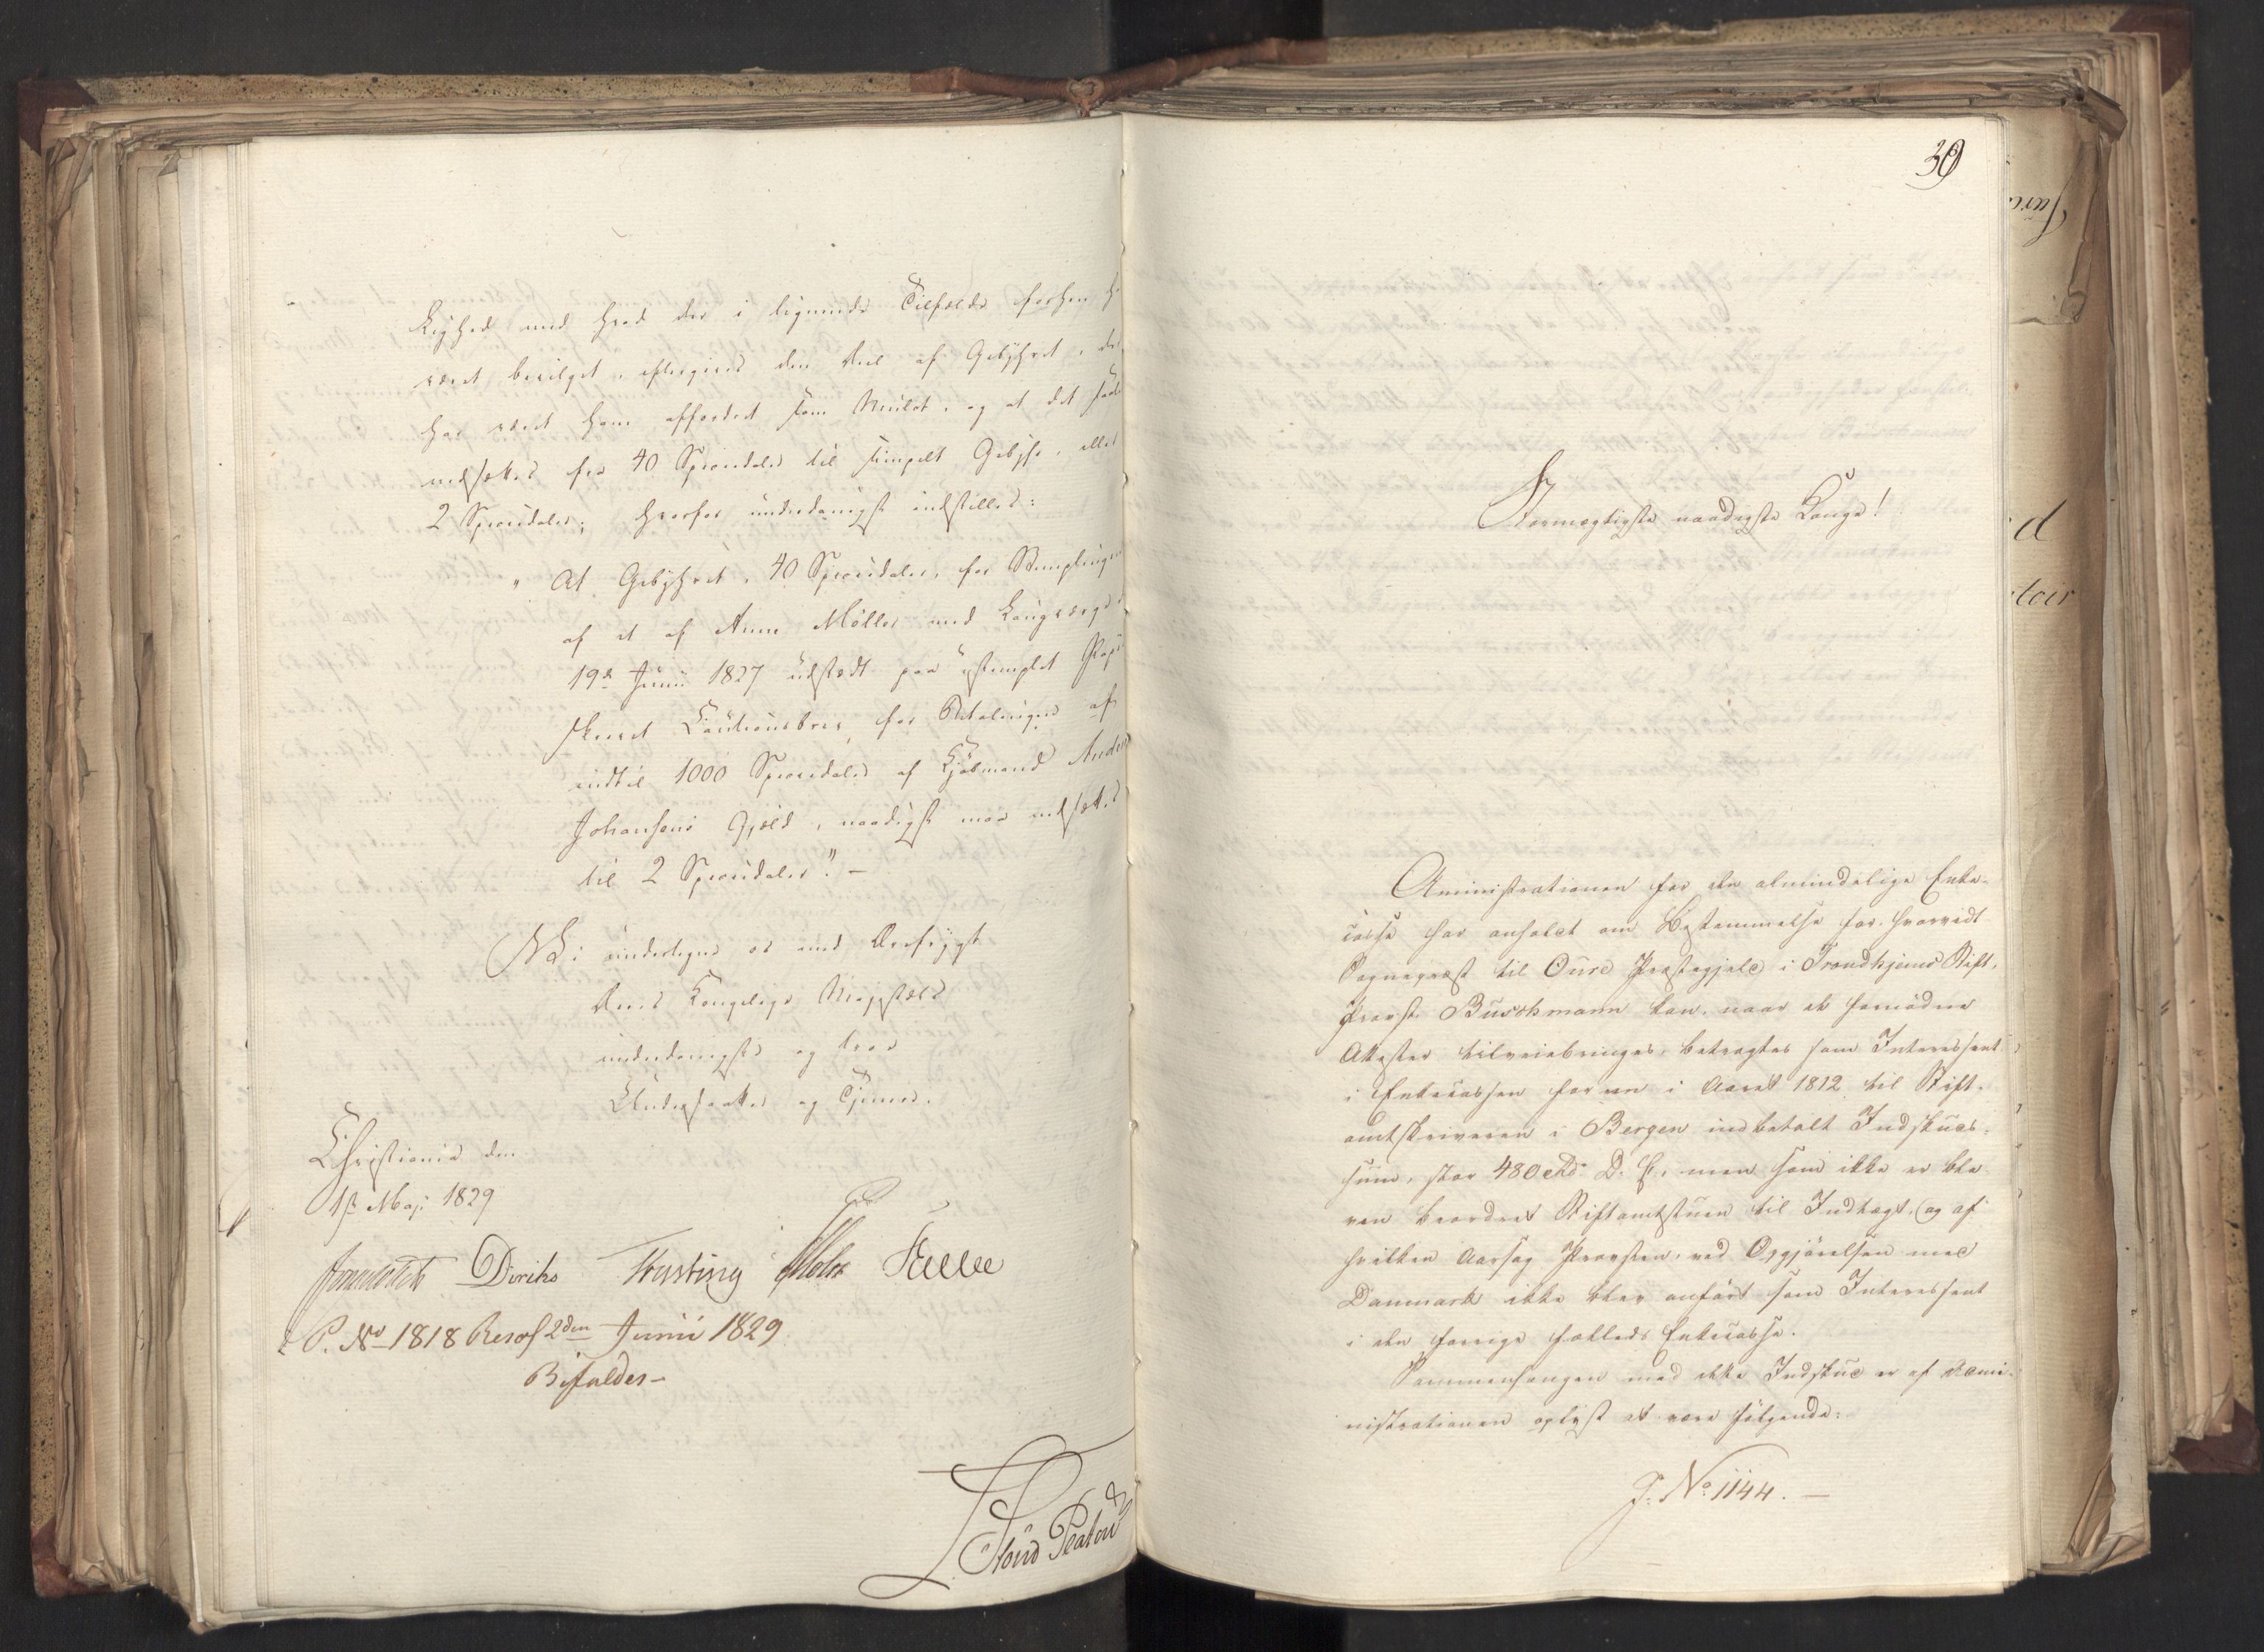 Lighed med hvad der i lignende Tilfælde forhen h
været bevilget, eftergives den Deel af Gebyhret, der
har været ham affordret som Mulct, og at det saal
nedsættes fra 40 Speciedaler til simpelt Gebyhr, eller
2 Speciedaler; hvorfor underdanigst indstilles:
"At Gebyhret, 40 Speciedaler, for Stemplingen
af et af Anne Møller med Laugværge
19de Junii 1827 udstedt paa ustemplet Papi
skrevet Cautionsbrev for Betalingen af
indtil 1000 Speciedaler af Kjøbmand Ander
Johansens Gjæld, naadigst maa nedsættes
til 2 Speciedaler". -
Vi undertegne os med Ærefrygt
Deres Kongelige Majestæts
underdanigste og troe
Undersaatter og Tjenere.
Christiania den
1ste Maji 1829
Diriks Krefting Holst
P. No 1818 Resol. 2den Junii 1829
Bifaldes -
39
Stormægtigste naadigste Konge!
Administrationen for den almindelige Enke-
casse har anholdt om Bestemmelse for, hvorvidt
Sognepræst til Oure Præstegjeld i Trondhjems Stift,
Provst Buschmann kan, naar de fornødne
Attester tilveiebringes, betragtes som Interessent
i Enkecassen for en i Aaret 1812 til Stift-
amtskriveren i Bergen indbetalt Indskuds-
sum, stor 480 Rd. D. C., men som ikke er ble-
ven beordret Stiftamtstuen til Indtægt, (og af
hvilken Aarsag Provsten, ved Opgjørelsen med
Danmark ikke blev anført som Interessent
i den forrige fælleds Enkecasse.
Sammenhængen med dette Indskud er af Admi-
nistrationen oplyst at være følgende:
J. No 1144. -